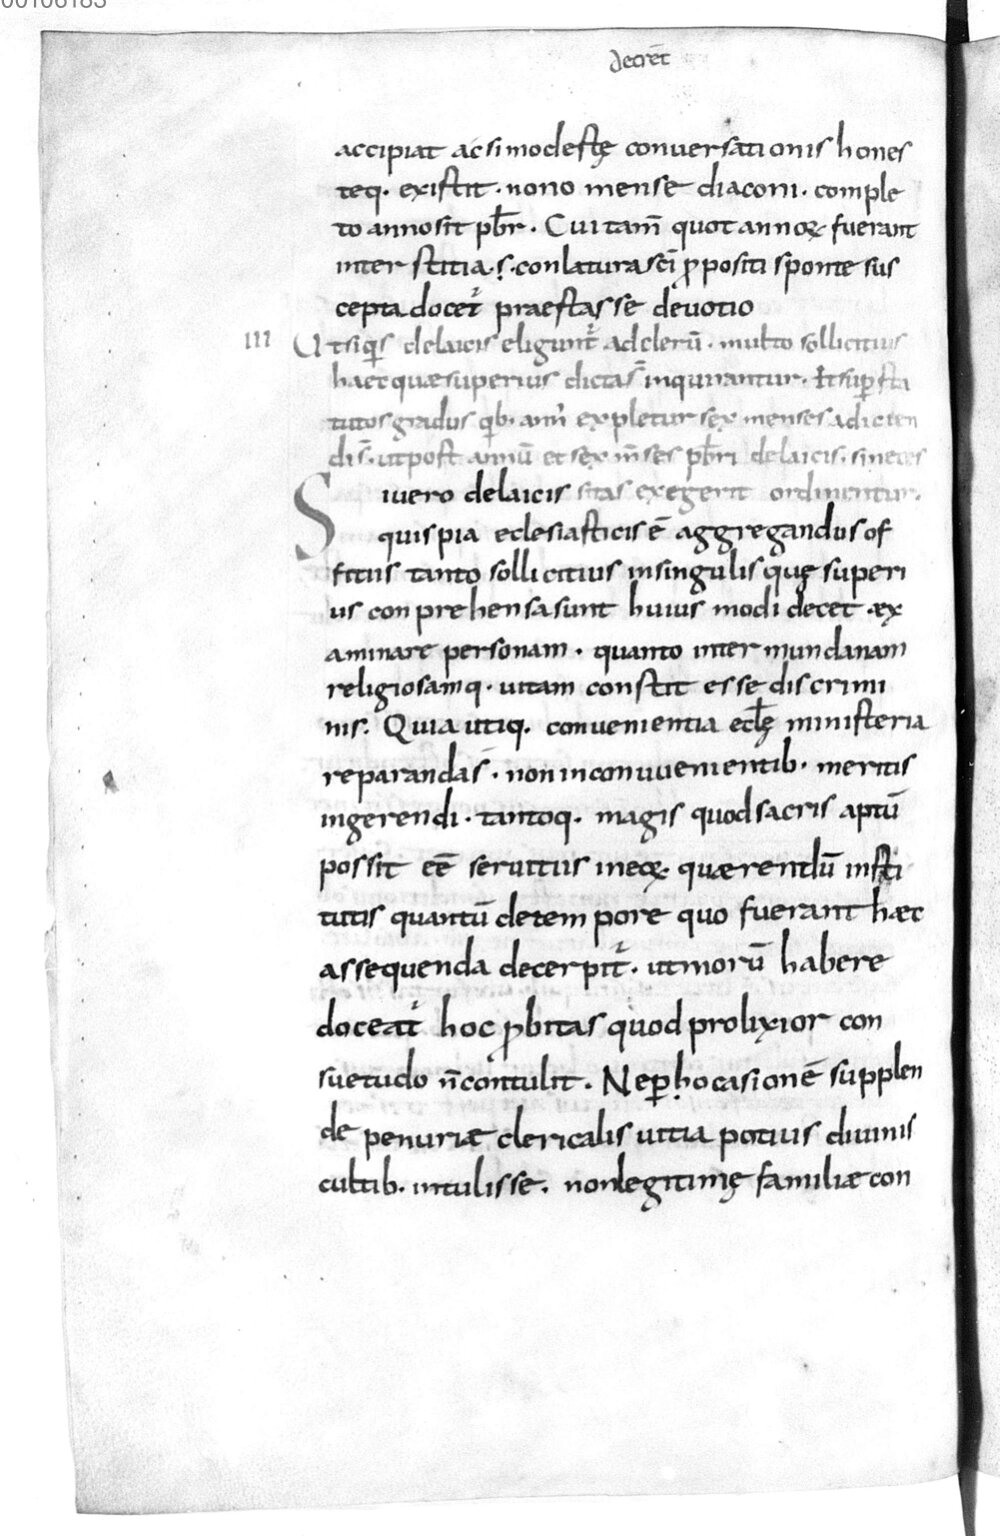 00106183
decret̄
accipiat ac si modestę conversationis hones
teq· existit· nono mense diaconi· comple
to anno sit pb̄r· Cui tam̄ quot annoꝝ fuerant
interstitia· ſ· conlatura sc̄i ꝓpositi sponte sus
cepta docet᷑ praestasse devotio
III Ut siq̇s de laicis eligunt᷑ ad clerū· multo sollicitius
haec quæ superius dicta s̄ inquirantur· Et suꝑ sta
tutos gradus qͥb· ann᷑ expletur sex menses adicien
di s̄· ut post annū et sex m̄ses pb̄ri de laicis· si neces
sitas exegerit ordinentur·
Si uero de laicis
quispia eclesiasticis ē aggregandus of
fitiis tanto sollicitius in singulis quę superi
us conprehensa sunt huius modi decet æx
aminare personam· quanto inter mundanam
religiosamq· uitam constit esse discrimi
nis· Quia utiq· convenientia ecl̄ę ministeria
reparanda s̄· non inconuuenientib· meritis
ingerendi· tantoq· magis quod sacris aptū
possit eē seruitiis in eoꝝ· quærendū insti
tutis quantū de tempore quo fuerant hæc
assequenda decerpit᷑· ut morū habere
doceat᷑ hoc ꝓbitas quod prolixior con
suetudo n̄ contulit· Ne ꝑ hocasionē supplen
de penuriæ clericalis uitia potius diuinis
cultib· intulisse· non legitimę familiæ con